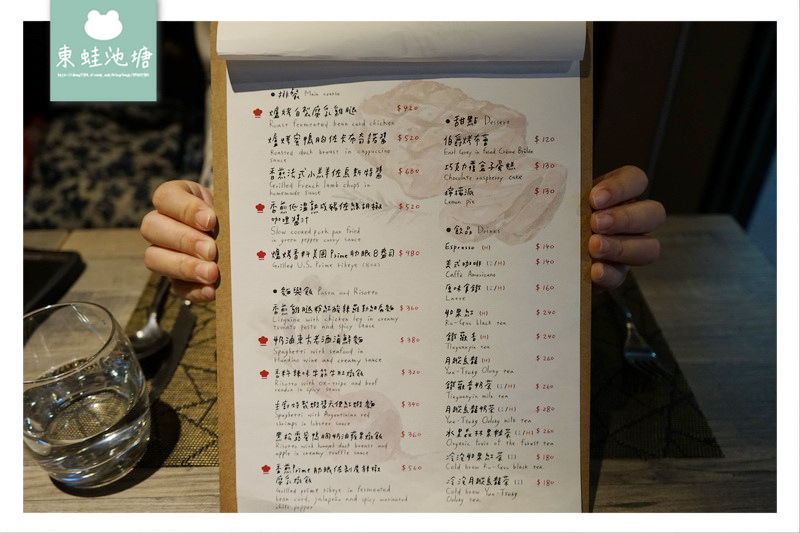 東蛙池塘
•排餐 Main course
爐烤自製腐乳雞腿 $420
Roast fermented bean curd chicken
爐烤蜜鴨胸佐卡布奇諾醬 $520
Roasted duck breast in cappuccino
sauce
香煎法式小羊佐 $680
Grilled french lamb chops in
homemade sauce
香煎低溫熟成豬佐綠胡椒 $520
咖哩醬汁
Slow cooked pork pan fried
in green pepper curry sauce
爐烤香料美國Prime肋眼8盎司 $980
Grilled U.S. Prime ribeye
•麵與飯 Pasta and Risotto
$360
Linguine with chicken leg in creamy
tomato pesto and spicy sauce
奶油東卡老酒海鮮麵 $380
Spaghetti with seafood in
sauce
香料辣味牛筋牛肚燉飯 $320
Risotto with ox-trips and beef
tendon in spicy sauce
$390
Spaghetti with Argentinian red
shrimps in lobster sauce
黑松露蜜鴨胸奶油蘋果燉飯 $360
Risotto with honey duck breast and
apple in creamy truffle sauce
香煎Prime肋眼佐剝皮辣椒 $560
腐乳燉飯
Grilled prime ribeye in fermented
bean curd, jalapeño and spicy marinated
chili pepper
•甜點 Dessert
伯爵烤布蕾 $120
Earl Grey in fused Crème Brûlée
巧克力覆盆子蛋糕 $130
Chocolate raspberry cake
檸檬派 $130
Lemon pie
•飲品 Drinks
Espresso (H) $140
美式咖啡 (I/H) $140
Caffè Americano
原味拿鐵 (I/H) $160
Latte
如果紅 (H) $240
Ru-Guo black tea
鐵觀音 (H) $240
Tieguanyin tea
月樅烏龍 (H) $260
Yue-Tsung Oolong tea
鐵觀音奶茶 (I/H) $260
Tieguanyin milk tea
月樅烏龍奶茶 (I/H) $280
Yue-Tsung Oolong milk tea
水果森林果粒茶 (I/H) $260
Organic fruit of the forest tea
冷泡如果紅茶 (I) $180
Cold brew Ru-Guo black tea
冷泡月樅烏龍茶 (I) $180
Cold brew Yue-Tsung
Oolong tea